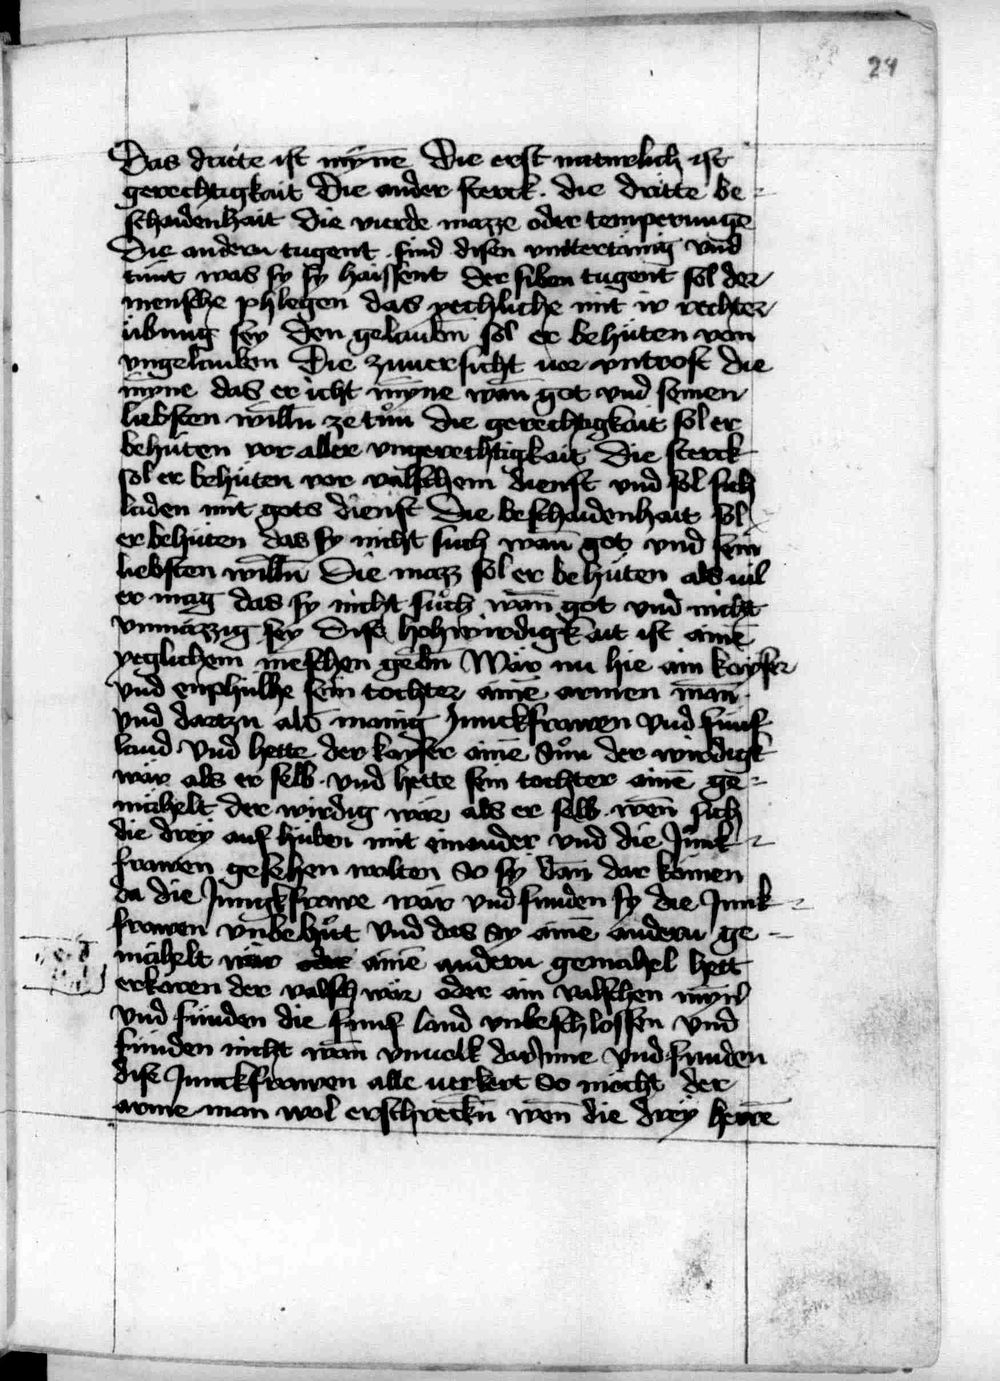 24
Das dritte ist mÿne Die erst naturlich ist
gerechtigkait Die ander sterck · die dritte be-
schaidenhait die vierde mazze oder temperunge
Die andern tugent · sind disen vnttertänig vnd
tünt was sy sy haissent der siben tugent sol der
mensche phlegen das yechliche mit ir rechter
übung sey Den gelaubñ sol er behüten von
vngelauben Die zuuersicht vor vntrost die
mÿne das er icht mÿne wañ got vnd seinen
liebsten willñ ze tůn die gerechtigkait sol er
behüten vor aller vngerechtigkait Die sterck
sol er behüten vor valschem dienst vnd sol sich
laden mit gots dienst Die beschaidenhait sol
er behüten das sy nicht such wañ got vnd sein
liebsten willñ Die mazz sol er behüten als uil
er mag das sy nicht sůch wañ got vnd nicht
vnmäzzig sey Dise hohwirdigkait ist ainē
yeglichem meschen gebñ Wär nu hie ain kayser
vnd enphülhe sein tochter ainē armen mañ
vnd dartzu als manig Junckfrawen vnd fünf
land vnd hette der kayser ainē Sůn der wirdigk
wär als er selb · vnd hette sein tochter ainē ge-
mähelt der wirdig wär als er selb wen sich
die dreÿ auf hüben mit einander vnd die Junk-
frawen gesehen wolten So sy dañ dar kömen
da die Junckfrawe wär vnd funden sy die Junk-
frawen vnbehůt vnd das sy ainē andern ge-
mähelt wär oder ainē andern gemahel hett
erkoren der valsch wär oder ain valschen mÿnē
vnd fünden die fünf land vnbeschlossen vnd
fünden nicht wañ vnuolk darJnne vnd funden
dise Junckfrawen alle verkert So möcht der
arme man wol erschreckñ weñ die dreÿ herrē